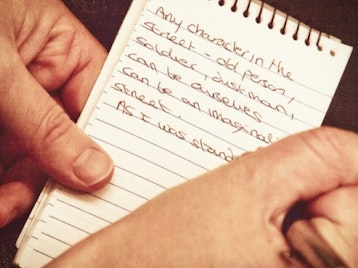 Any character in the
street - old person,
soldier, dustman,
can be ourselves
can be an imaginal
street.
As I was stand